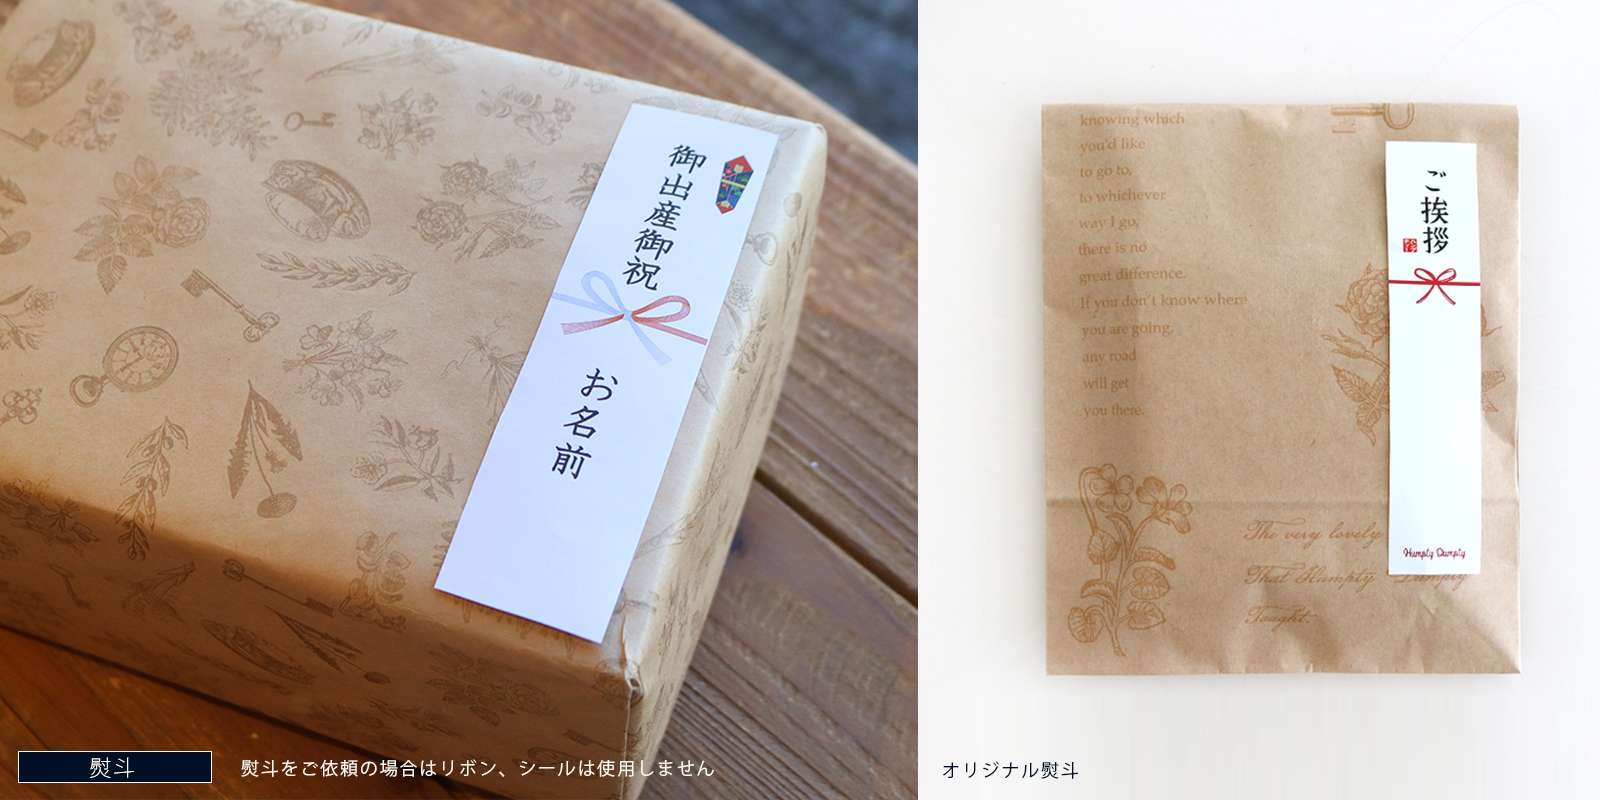 御出産御祝
お名前
熨斗
熨斗をご依頼の場合はリボン、シールは使用しません
knowing which
you'd like
to go to,
to whichever
way I go,
there is no
great difference.
If you don't know where
you are going,
any road
will get
you there.
ご挨拶
The very lovely
That Humpty Dumpty
Taught.
Humpty Dumpty
オリジナル熨斗